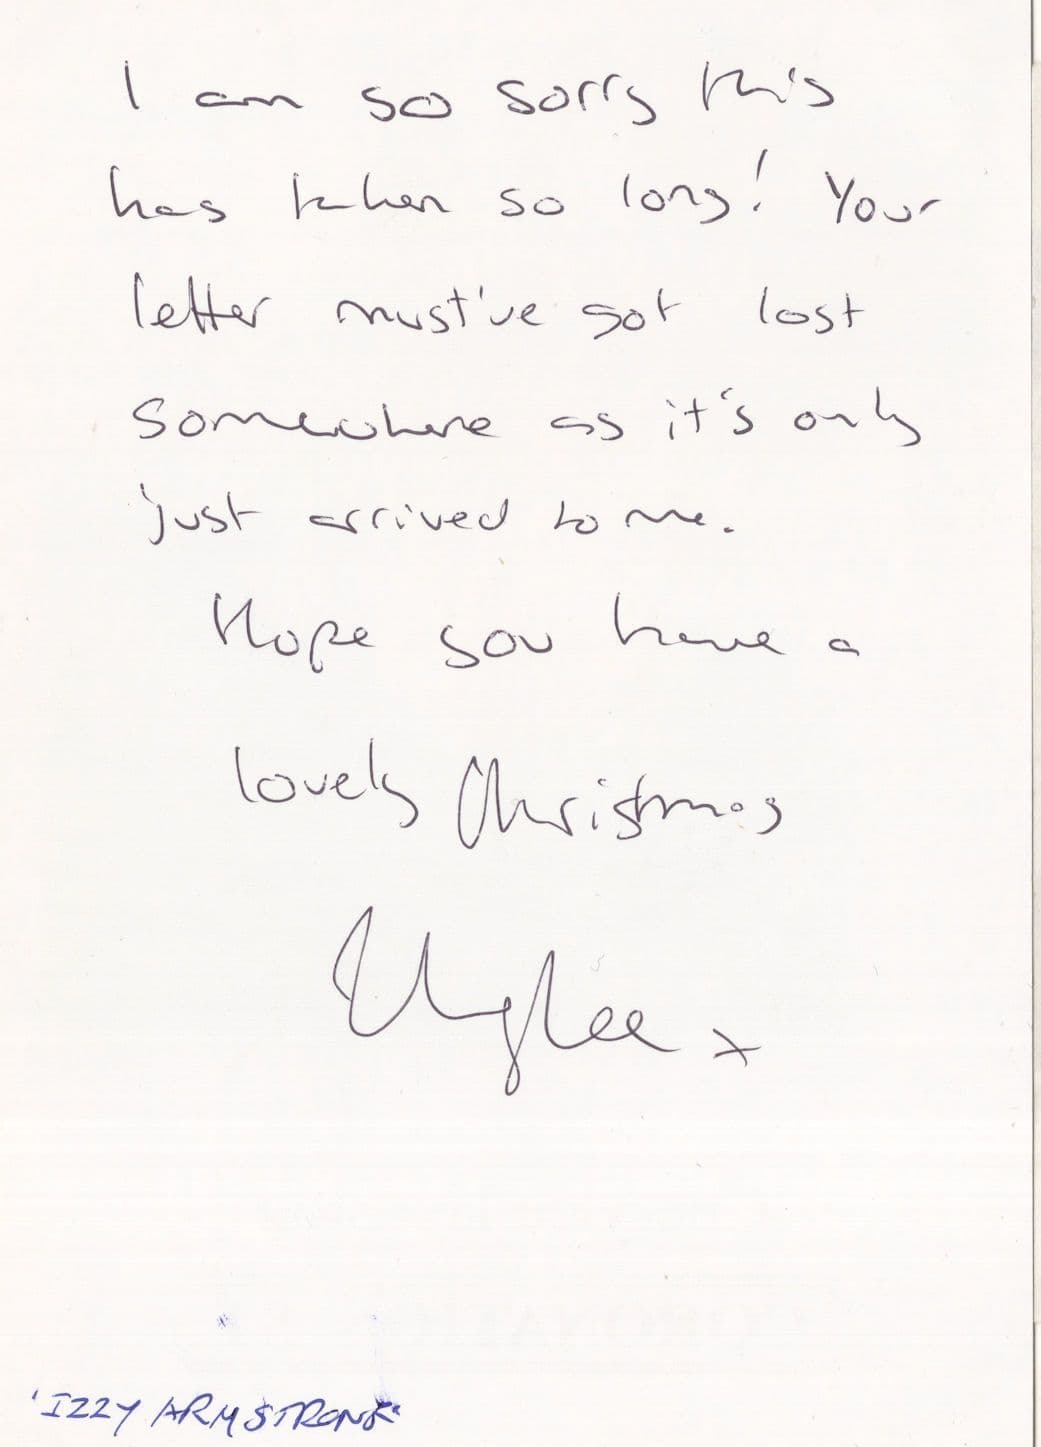 I am so sorry this
has taken so long! Your
letter must've got lost
somewhere as it's only
just arrived to me.
Hope you have a
lovely Christmas
x
'IZZY ARMSTRONG'